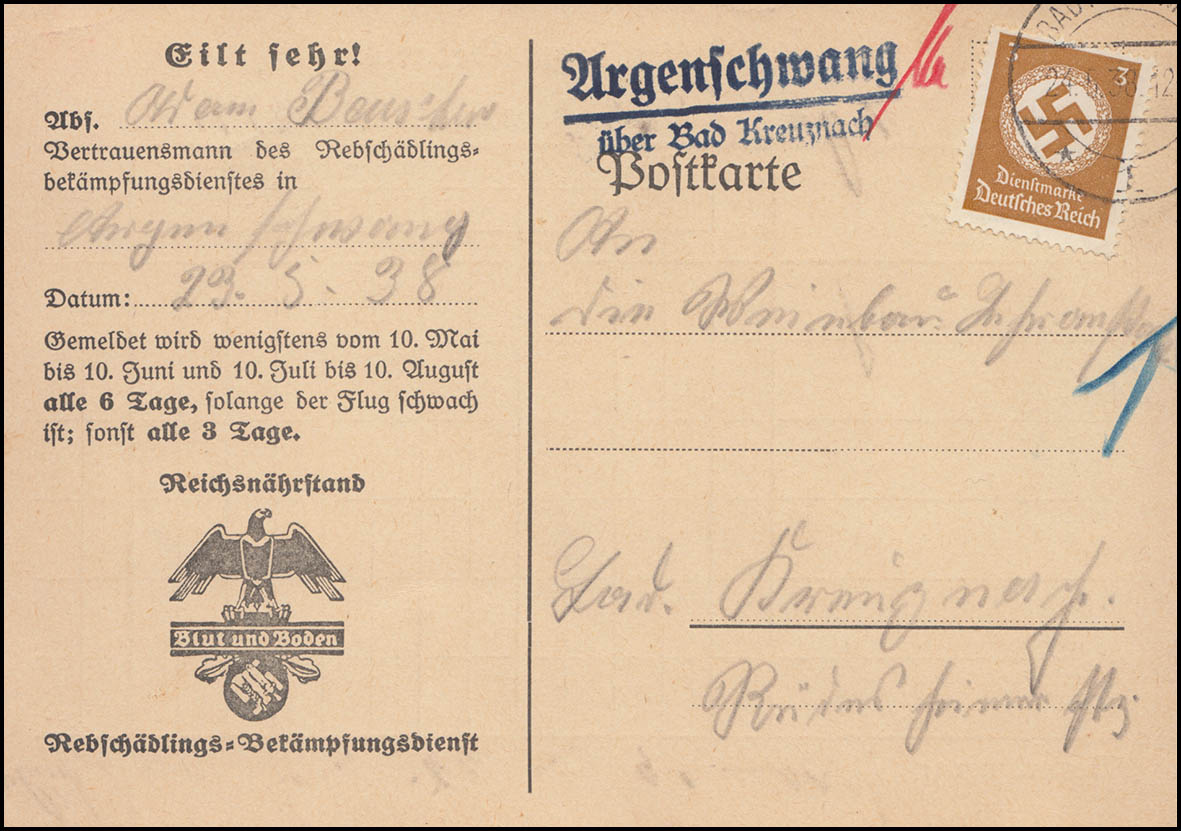 Eilt sehr!
Abs. Adam
Vertrauensmann des Rebschädlings-
bekämpfungsdienstes in
Argenschwang
Datum: 23. 5. 38
Gemeldet wird wenigstens vom 10. Mai
bis 10. Juni und 10. Juli bis 10. August
alle 6 Tage, solange der Flug schwach
ist; sonst alle 3 Tage.
Reichsnährstand
Blut und Boden
Rebschädlings-Bekämpfungsdienst
Argenschwang
über Bad Kreuznach
Postkarte
3
Dienstmarke
Deutsches Reich
An
die Weinbau-Lehranstalt
Bad. Kreuznach.
Rüdesheimer Str.